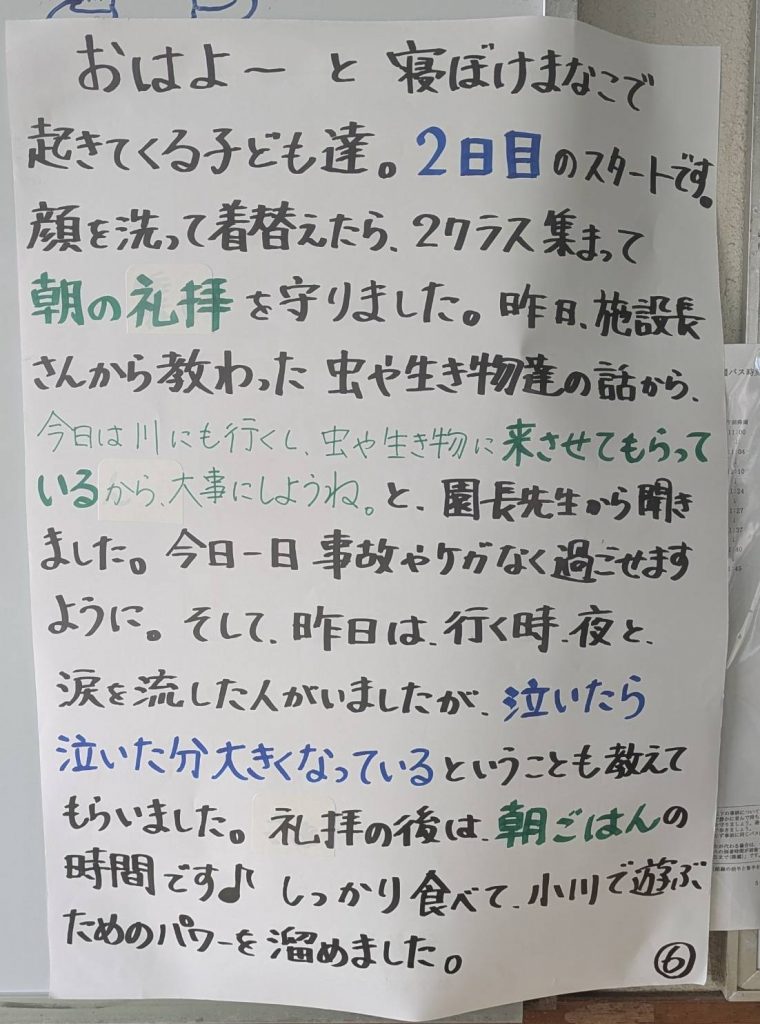 おはよ～と寝ぼけまなこで
起きてくる子ども達。2日目のスタートです。
顔を洗って着替えたら、2クラス集まって
朝の礼拝を守りました。昨日、施設長
さんから教わった虫や生き物達の話から、
今日は川にも行くし、虫や生き物に来させてもらって
いるから、大事にしようね。と、園長先生から聞き
ました。今日一日事故やケガなく過ごせます
ように。そして、昨日は、行く時、夜と、
涙を流した人がいましたが、泣いたら
泣いた分大きくなっているということも教えて
もらいました。礼拝の後は、朝ごはんの
時間です♪しっかり食べて、小川で遊ぶ
ためのパワーを溜めました。
⑥
11:00